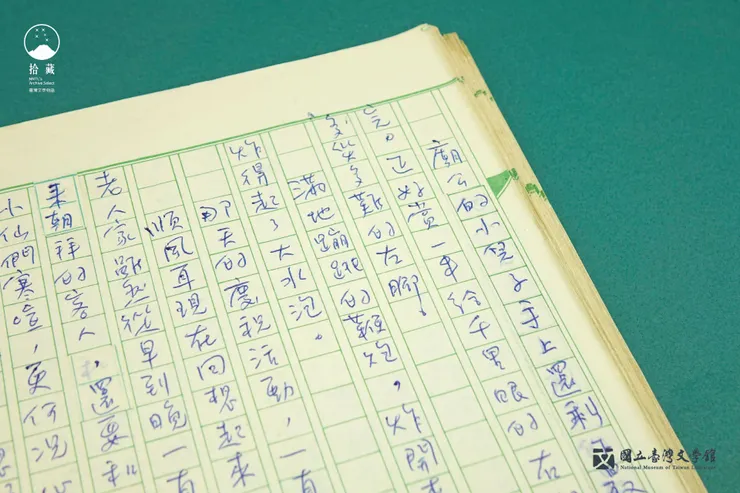 拾藏
NMTL's
Archive Select
臺灣文學物語
廟公的小兒子手上還剩
正好賞一串給千里眼的右
多災多難的右腳！
滿地蹦跳的鞭炮，炸開
炸得起了大水泡。
那天的慶祝活動，一直
順風耳現在回想起來
老人家雖然從早到晚一直
來朝拜的客人，還要和
小仙們寒喧，更何況
國立臺灣文學館
National Museum of Taiwan Literature